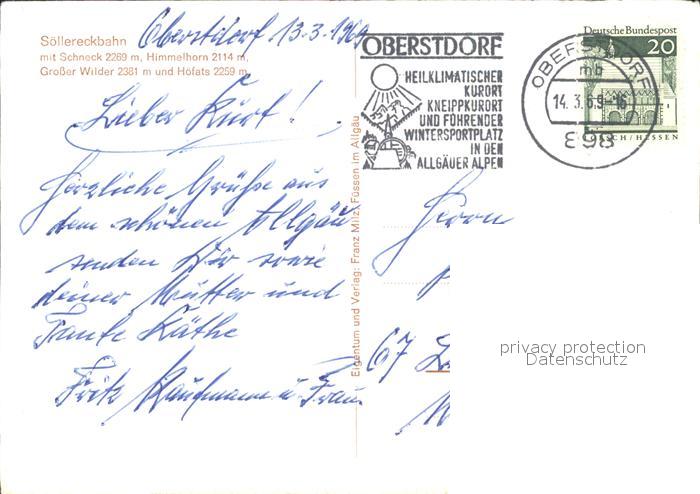 Söllereckbahn
mit Schneck 2269 m, Himmelhorn 2114 m,
Großer Wilder 2381 m und Höfats 2259 m.
Oberstdorf 13.3.1969
Lieber Kurt!
Herzliche Grüße aus
dem schönen Allgäu
senden Dir sowie
deiner Mutter und
Tante Käthe
Fritz Kaufmann u. Frau
Eigentum und Verlag: Franz Milz, Füssen im Allgäu
OBERSTDORF
HEILKLIMATISCHER
KURORT
KNEIPPKURORT
UND FÜHRENDER
WINTERSPORTPLATZ
IN DEN
ALLGÄUER ALPEN
OBERSTDORF
mb
14.3.69-16
898
Deutsche Bundespost
20
CH/HESSEN
Herrn
67
privacy protection
Datenschutz